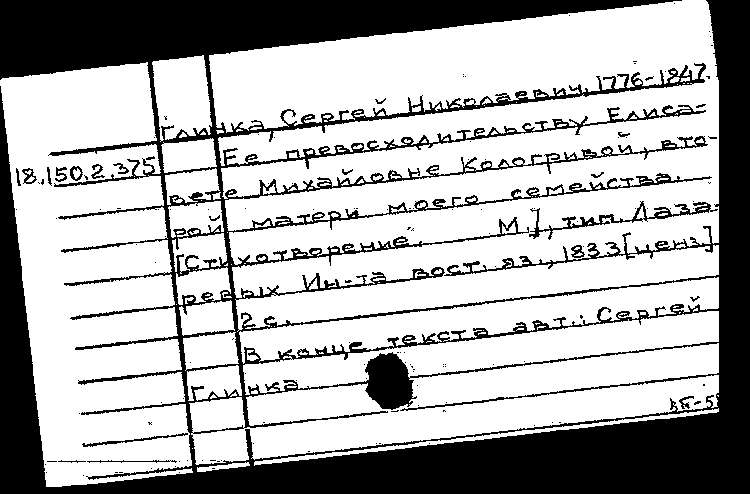 Глинка, Сергей Николаевич, 1776-1847.
18.150.2.375 Ее превосходительству Елиса=
вете Михайловне Кологривой, вто-
рой матери моего семейства.
[Стихотворение. М.], тип. Лаза-
ревых Ин-та вост. яз., 1833 [ценз.]
2 с.
В конце текста авт.: Сергей
Глинка